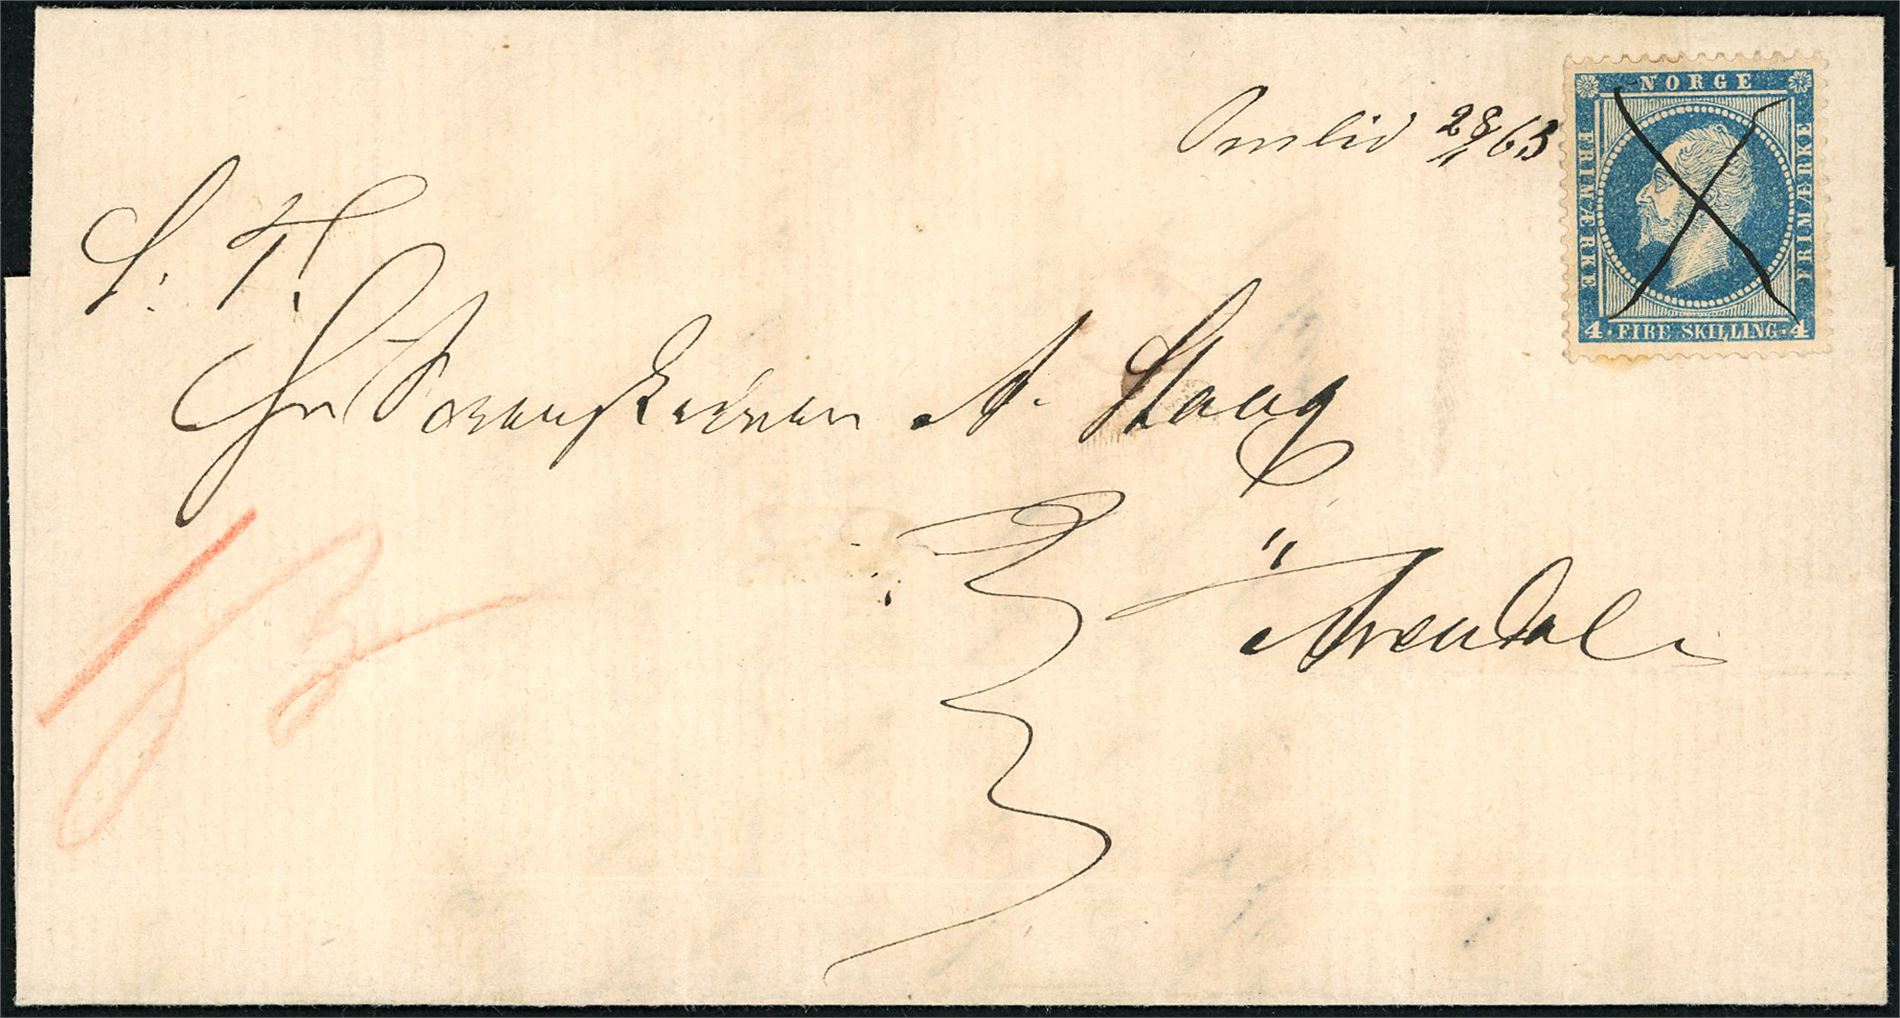 NORGE
FRIMÆRKE
FRIMÆRKE
4 · FIRE SKILLING · 4
Omlid 28/1 63
S. T.
Hr A. Haag
Arendal